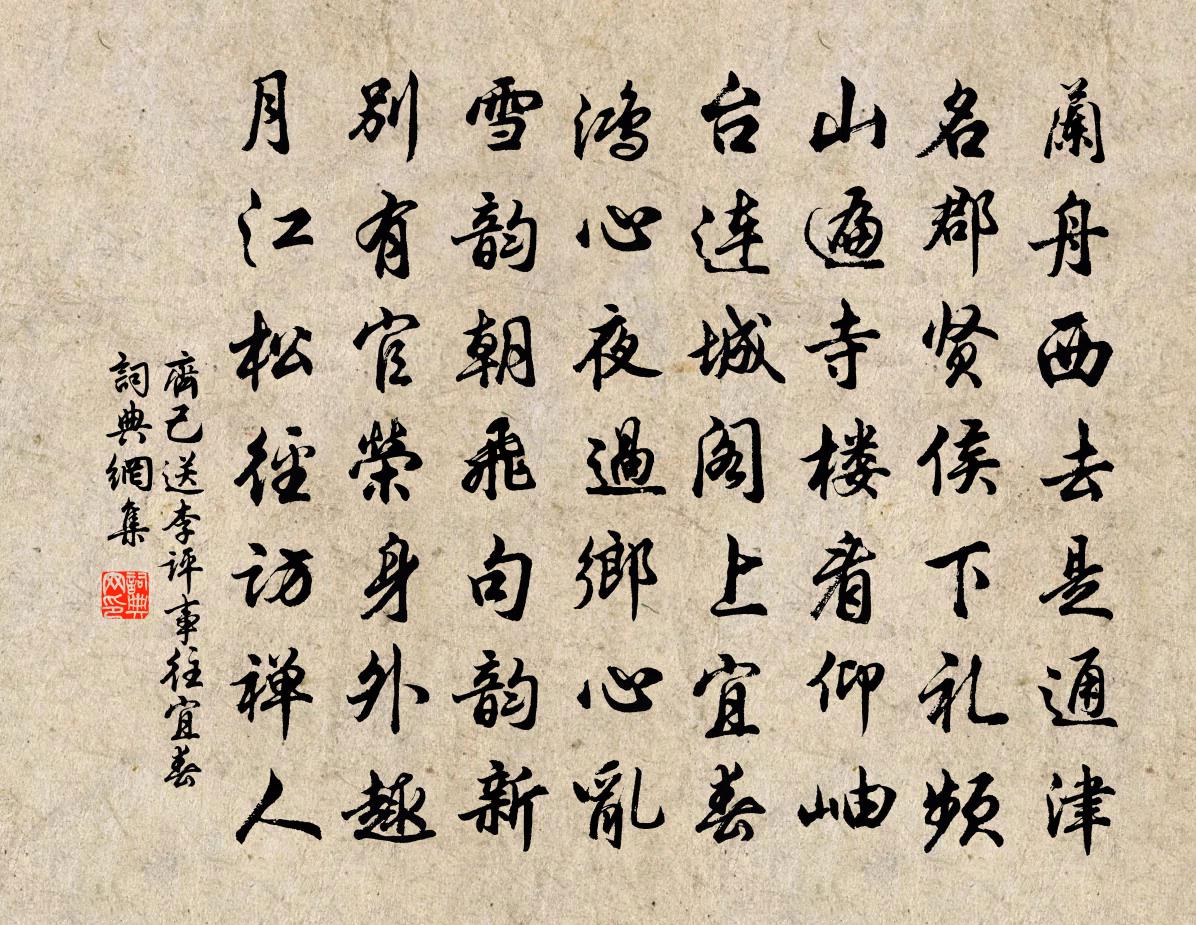 蘭舟西去是通津
名郡贤侯下礼频
山遍寺楼看仰岫
台连城阁上宜春
鸿心夜過鄉心亂
雪韵朝飛句韵新
别有官榮身外趣
月江松徑访禅人
齊己送李评事往宜春
詞典網集
詞典网印